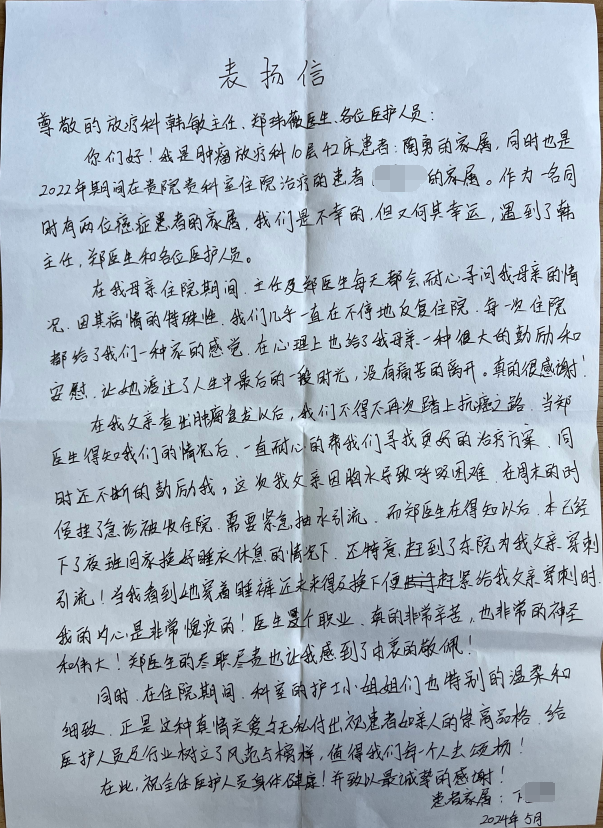 表扬信
尊敬的放疗科韩敏主任、郑玮薇医生、各位医护人员：
你们好！我是肿瘤放疗科10层42床患者：陶勇的家属，同时也是
2022年期间在贵院贵科室住院治疗的患者 的家属。作为一名同
时有两位癌症患者的家属，我们是不幸的，但又何其幸运，遇到了韩
主任，郑医生和各位医护人员。
在我母亲住院期间，主任及郑医生每天都会耐心寻问我母亲的情
况，因其病情的特殊性，我们几乎一直在不停地反复住院，每一次住院
都给了我们一种家的感觉，在心理上也给了我母亲一种很大的鼓励和
安慰，让她渡过了人生中最后的一段时光，没有痛苦的离开。真的很感谢！
在我父亲查出肿瘤复发以后，我们不得不再次踏上抗癌之路，当郑
医生得知我们的情况后，一直耐心的帮我们寻找更好的治疗方案，同
时还不断的鼓励我，这次我父亲因胸水导致呼吸困难，在周末的时
候挂了急诊被收住院，需要紧急抽水引流，而郑医生在得知以后，本已经
下了夜班回家换好睡衣休息的情况下，还特意赶到了东院为我父亲穿刺
引流！当我看到她穿着睡裤还未来得及换下便赶紧给我父亲穿刺时，
我的内心是非常愧疚的！医生这个职业，真的非常辛苦，也非常的神经
和伟大！郑医生的尽职尽责也让我感到了由衷的敬佩！
同时，在住院期间，科室的护士小姐姐们也特别的温柔和
细致，正是这种真情关爱与无私付出，视患者如亲人的崇高品格，给
医护人员及行业树立了风范与榜样，值得我们每一个人去颂扬！
在此，祝全体医护人员身体健康！并致以最诚挚的感谢！
患者家属：
2024年5月